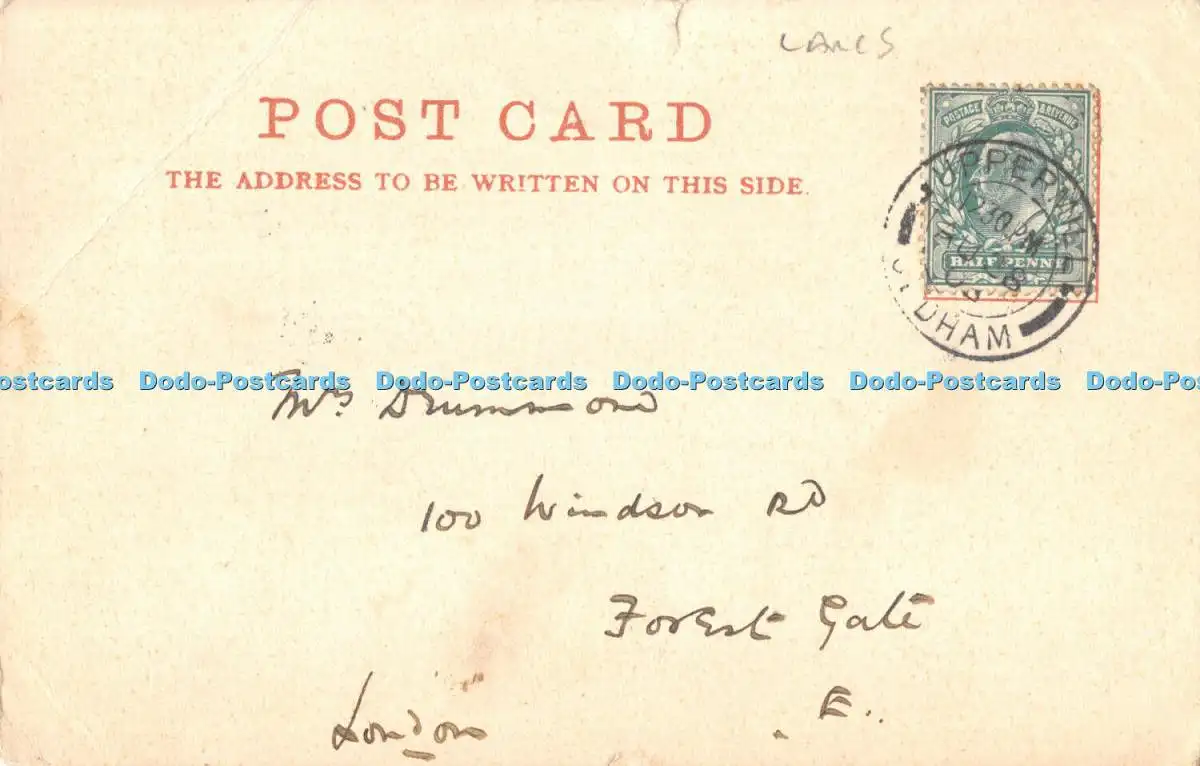 LANCS
POST CARD
POSTAGE & REVENUE
THE ADDRESS TO BE WRITTEN ON THIS SIDE.
UPPERMILL
HALFPENNY
OLDHAM
ostcards Dodo-Postcards Dodo-Postcards Dodo-Postcards Dodo-Postcards Dodo-Po
Mrs Drummond
100 Windsor RD
Forest Gate
London E.